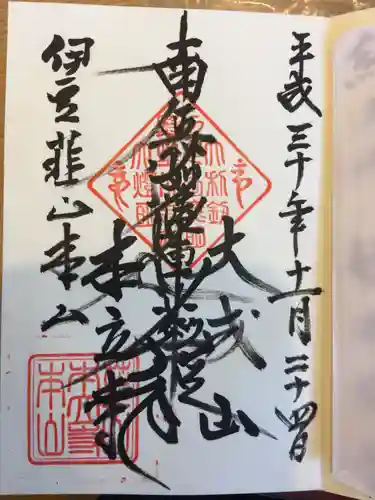 平成三十年十一月二十四日
南無妙法蓮華経
大成山
本立寺
伊豆韮山本山